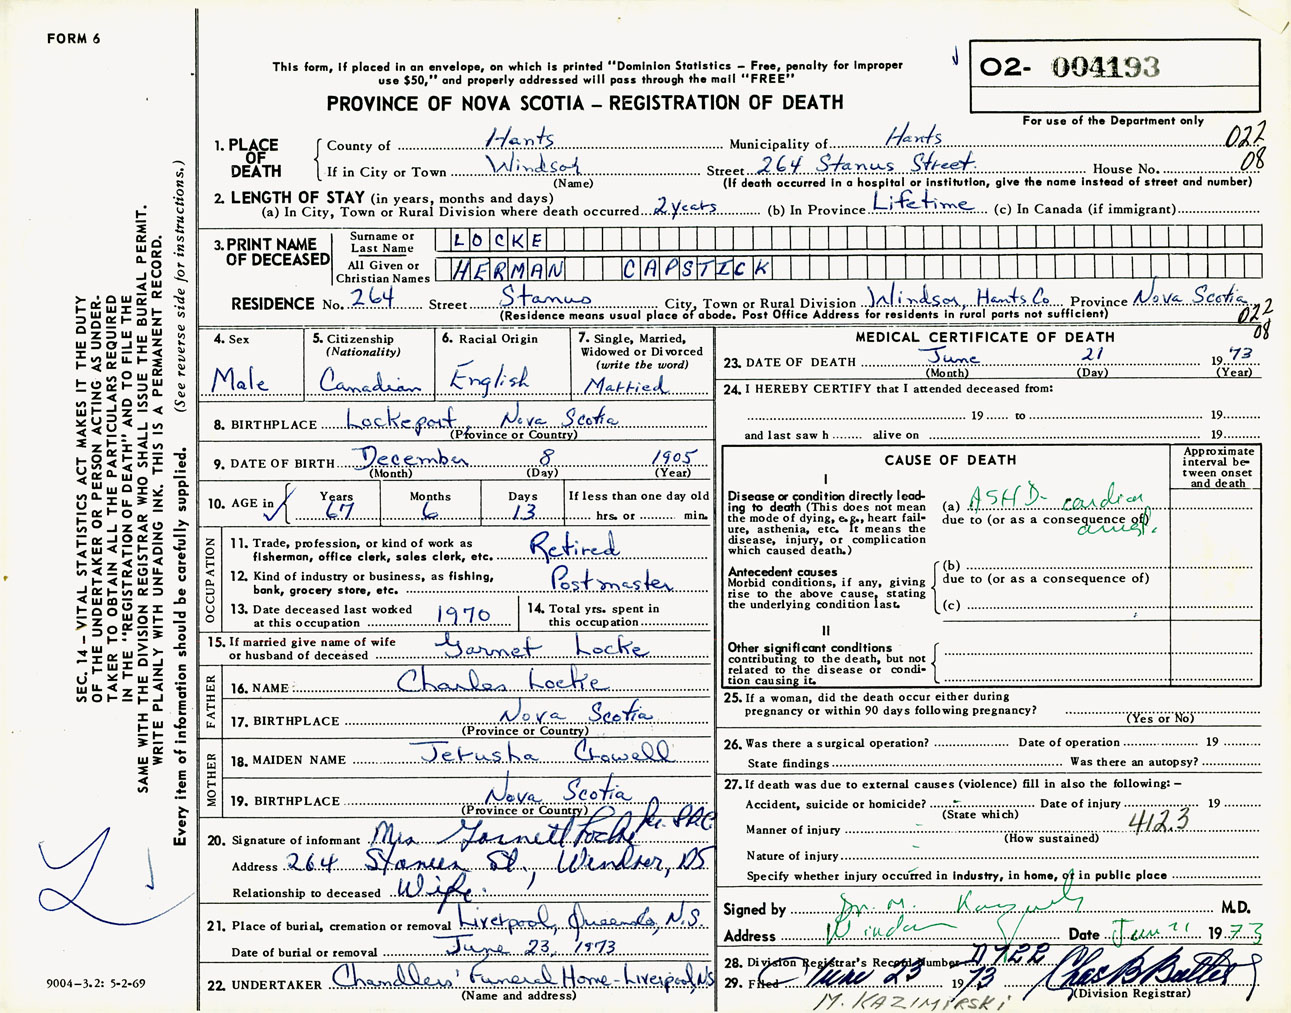 FORM 6
This form, if placed in an envelope, on which is printed "Dominion Statistics – Free, penalty for improper
use $50," and properly addressed will pass through the mail "FREE"
PROVINCE OF NOVA SCOTIA – REGISTRATION OF DEATH
O2- 004193
For use of the Department only
1. PLACE OF DEATH
County of Hants Municipality of Hants 022
If in City or Town Windsor Street 264 Stanus Street. House No. 08
(Name) (If death occurred in a hospital or institution, give the name instead of street and number)
2. LENGTH OF STAY (in years, months and days)
(a) In City, Town or Rural Division where death occurred 2 years (b) In Province Lifetime (c) In Canada (if immigrant)
3. PRINT NAME OF DECEASED
Surname or Last Name LOCKE
All Given or Christian Names HERMAN CAPSTICK
RESIDENCE No. 264 Street Stanus City, Town or Rural Division Windsor, Hants Co Province Nova Scotia
(Residence means usual place of abode. Post Office Address for residents in rural parts not sufficient) 022
08
4. Sex Male
5. Citizenship (Nationality) Canadian
6. Racial Origin English
7. Single, Married, Widowed or Divorced (write the word) Married
8. BIRTHPLACE Lockeport, Nova Scotia
(Province or Country)
9. DATE OF BIRTH December 8 1905
(Month) (Day) (Year)
10. AGE in Years 67 Months 6 Days 13 If less than one day old
hrs. or min.
OCCUPATION
11. Trade, profession, or kind of work as fisherman, office clerk, sales clerk, etc. Retired
12. Kind of industry or business, as fishing, bank, grocery store, etc. Postmaster
13. Date deceased last worked at this occupation 1970
14. Total yrs. spent in this occupation
15. If married give name of wife or husband of deceased Garnet Locke
FATHER
16. NAME: Charles Locke
17. BIRTHPLACE Nova Scotia
(Province or Country)
MOTHER
18. MAIDEN NAME Jerusha Crowell
19. BIRTHPLACE Nova Scotia
(Province or Country)
20. Signature of informant Mrs Garnett Locke
Address 264 Stanus St., Windsor, NS
Relationship to deceased Wife.
21. Place of burial, cremation or removal Liverpool, Queens, N.S.
Date of burial or removal June 23, 1973
22. UNDERTAKER Chandlers' Funeral Home - Liverpool, NS
(Name and address)
MEDICAL CERTIFICATE OF DEATH
23. DATE OF DEATH June 21 1973
(Month) (Day) (Year)
24. I HEREBY CERTIFY that I attended deceased from:
19 to 19
and last saw h alive on 19
CAUSE OF DEATH
Approximate interval between onset and death
I
Disease or condition directly leading to death (This does not mean the mode of dying, e.g., heart failure, asthenia, etc. It means the disease, injury, or complication which caused death.)
(a) ASHD - cardiac arrest.
due to (or as a consequence of)
Antecedent causes
Morbid conditions, if any, giving rise to the above cause, stating the underlying condition last.
(b)
due to (or as a consequence of)
(c)
II
Other significant conditions
contributing to the death, but not related to the disease or condition causing it.
25. If a woman, did the death occur either during
pregnancy or within 90 days following pregnancy?
(Yes or No)
26. Was there a surgical operation? Date of operation 19
State findings Was there an autopsy?
27. If death was due to external causes (violence) fill in also the following: –
Accident, suicide or homicide? Date of injury 19
(State which)
Manner of injury 412.3
(How sustained)
Nature of injury
Specify whether injury occurred in industry, in home, or in public place
Signed by Dr. M. M.D.
Address Windsor Date June 21 1973
28. Division Registrar's Record Number
29. Filed June 23 1973 Chas B Butler
(Division Registrar)
M. KAZIMIRSKI
SEC. 14 – VITAL STATISTICS ACT MAKES IT THE DUTY
OF THE UNDERTAKER OR PERSON ACTING AS UNDER-
TAKER TO OBTAIN ALL THE PARTICULARS REQUIRED
IN THE "REGISTRATION OF DEATH" AND TO FILE THE
SAME WITH THE DIVISION REGISTRAR WHO SHALL ISSUE THE BURIAL PERMIT.
WRITE PLAINLY WITH UNFADING INK. THIS IS A PERMANENT RECORD.
Every item of information should be carefully supplied. (See reverse side for instructions.)
9004-3.2: 5-2-69